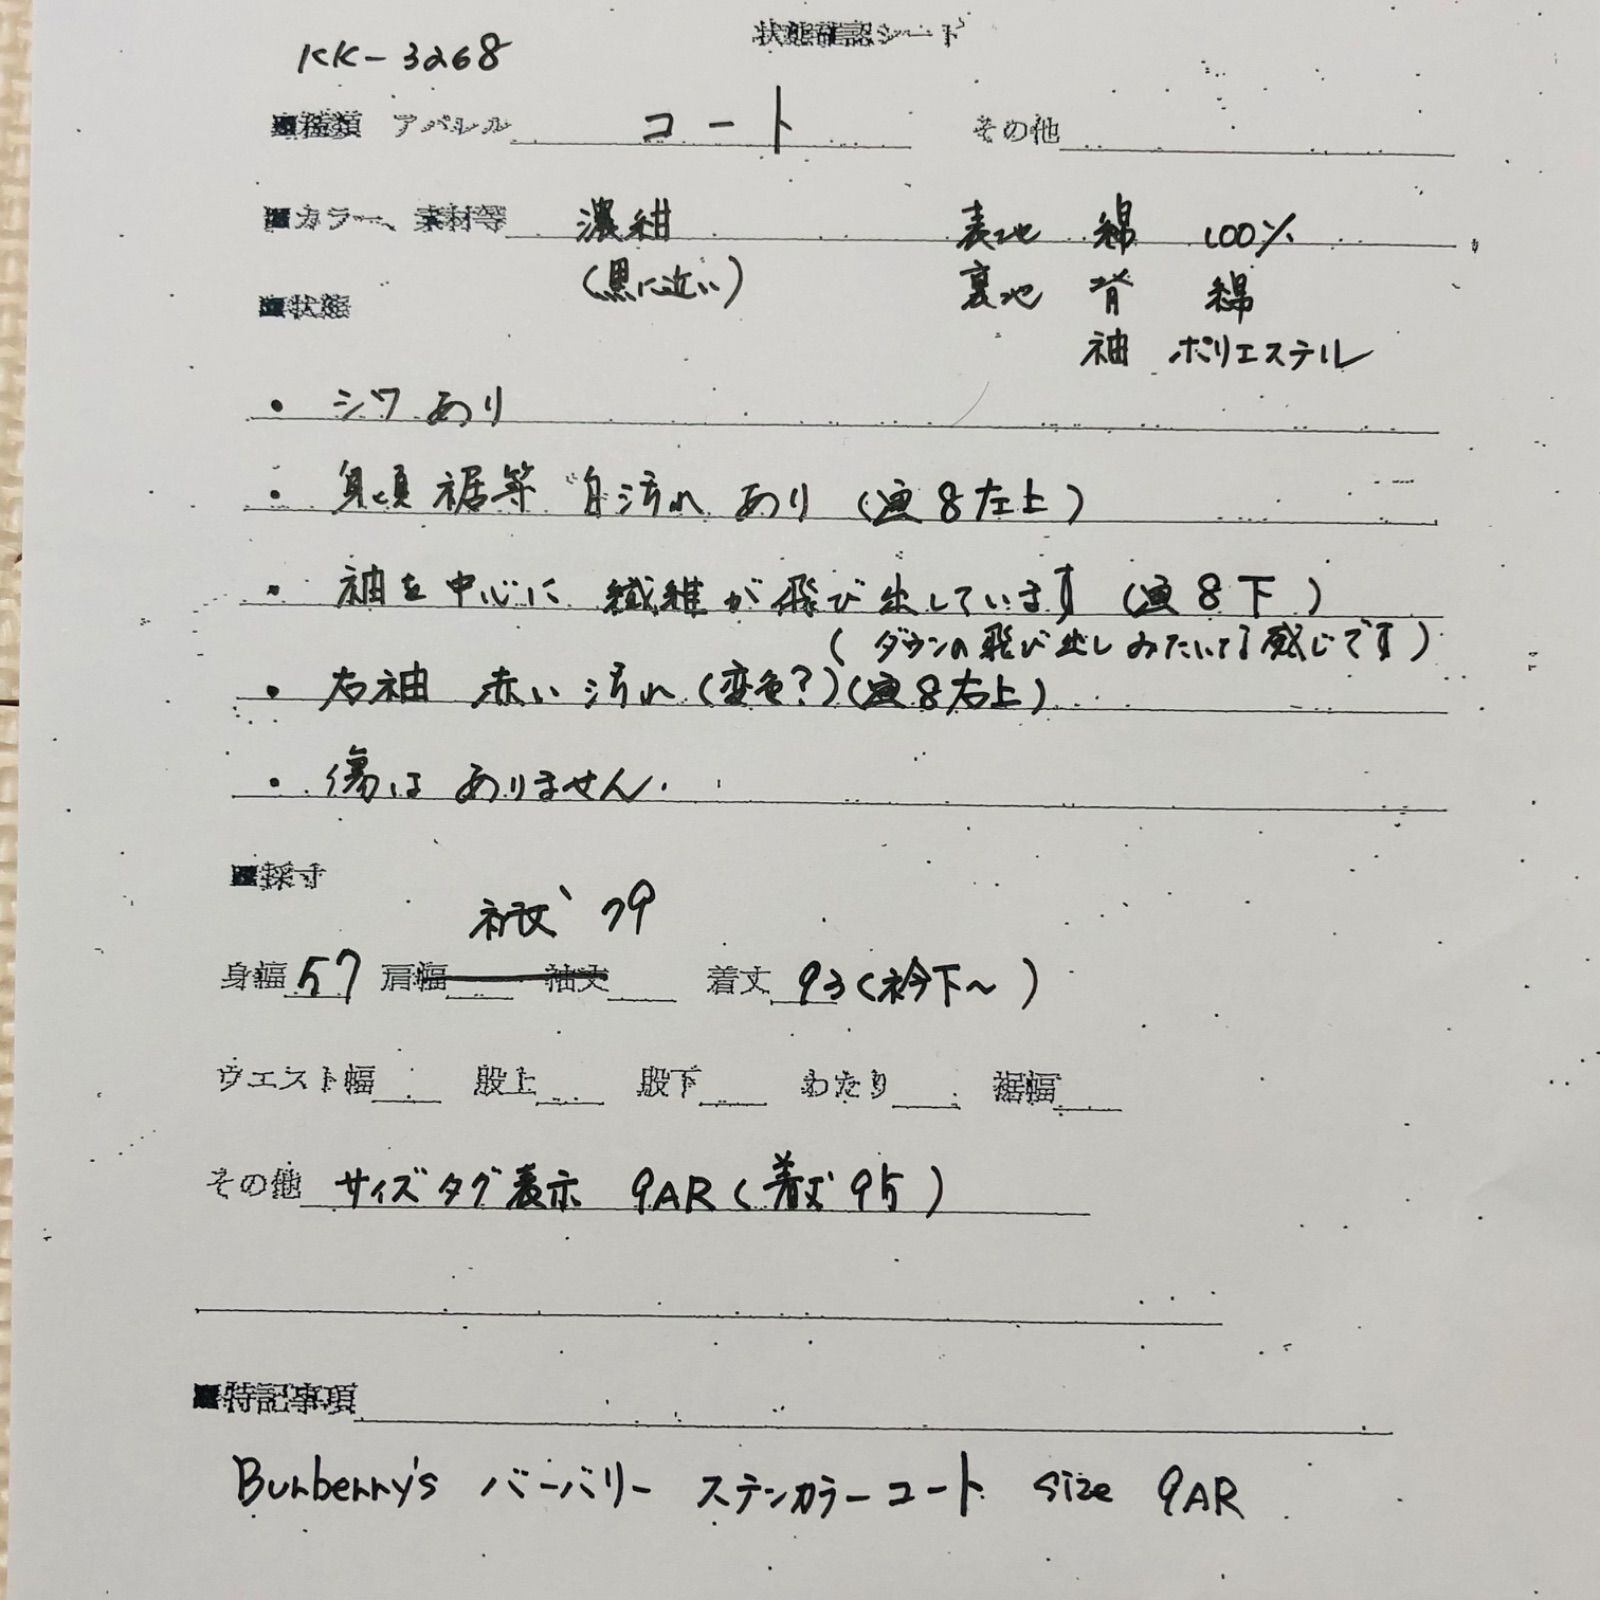 状態確認シート
KK-3268
■種類 アパレル コート その他
■カラー、素材等 濃紺 表地 綿 100%
(黒に近い) 裏地 背 綿
■状態
袖 ポリエステル
・シワあり
・身頃裾等 白汚れ あり (画8左上)
・袖を中心に 繊維が飛び出しています (画8下)
(ダウンの飛び出しみたいな感じです)
・右袖 赤い汚れ(変色?)(画8右上)
・傷は ありません.
■採寸
裄丈 79
身幅 57 肩幅 袖丈 着丈 93(衿下~)
ウエスト幅 股上 股下 わたり 裾幅
その他 サイズタグ表示 9AR(着丈95)
■特記事項
Burberry's バーバリー ステンカラーコート size 9AR